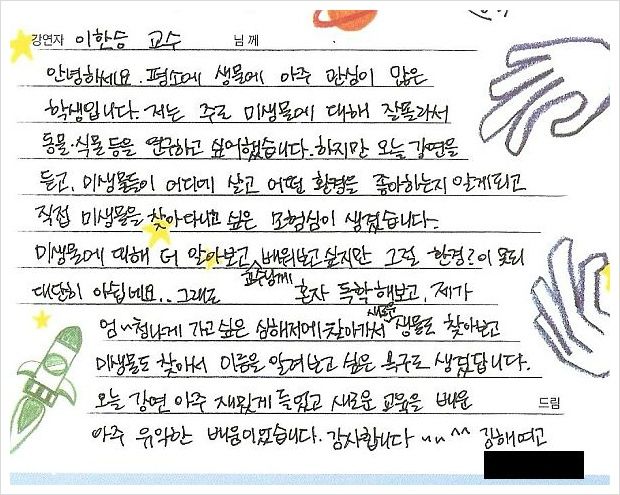 강연자 이한승 교수 님께
안녕하세요. 평소에 생물에 아주 관심이 많은
학생입니다. 저는 주로 미생물에 대해 잘몰라서
동물·식물 등을 연구하고 싶어했습니다. 하지만 오늘 강연을
듣고, 미생물들이 어디에 살고 어떤 환경을 좋아하는지 알게되고
직접 미생물을 찾아다니고 싶은 모험심이 생겼습니다.
미생물에 대해 더 알아보고, 교수님께 배워보고 싶지만 그럴 환경?이 못되
대단히 아쉽네요.. 그래도 혼자 독학해보고, 제가
엄~청나게 가고싶은 심해저에 찾아가서 새로운 생물도 찾아보고
미생물도 찾아서 이름을 알려보고 싶은 욕구도 생겼답니다.
오늘 강연 아주 재밌게 들었고 새로운 교육을 배운 드림
아주 유익한 배움이었습니다. 감사합니다 ~~ ^^ 강해여고